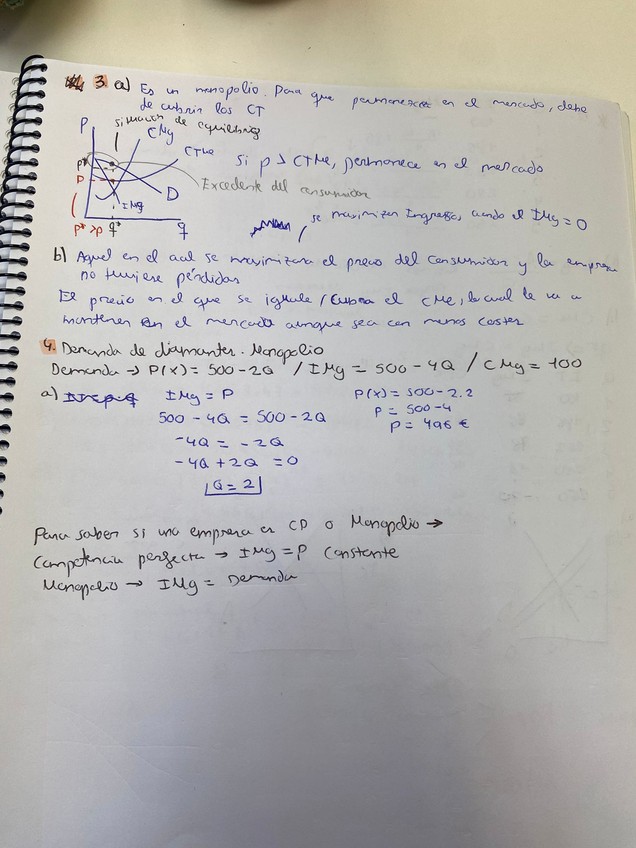 3. a) Es un monopolio. Para que permanezca en el mercado, debe
de cubrir los CT
P situación de equilibrio
CMg
CTMe
Si p > CTMe, permanece en el mercado
P*
P
D
Excedente del consumidor
IMg
se maximizan Ingresos, cuando el IMg = 0
P* > P q* q
b) Aquel en el cual se maximizara el precio del consumidor y la empresa
no tuviese pérdidas
El precio en el que se iguale / cubra el CMe, lo cual le va a
mantener en el mercado aunque sea con menos costes
4. Demanda de diamantes. Monopolio
Demanda → P(x) = 500 - 2Q / IMg = 500 - 4Q / CMg = 100
a) IMg = P P(x) = 500 - 2.2
500 - 4Q = 500 - 2Q P = 500 - 4
-4Q = -2Q P = 496 €
-4Q + 2Q = 0
Q = 2
Para saber si una empresa es CP o Monopolio →
Competencia perfecta → IMg = P constante
Monopolio → IMg = Demanda